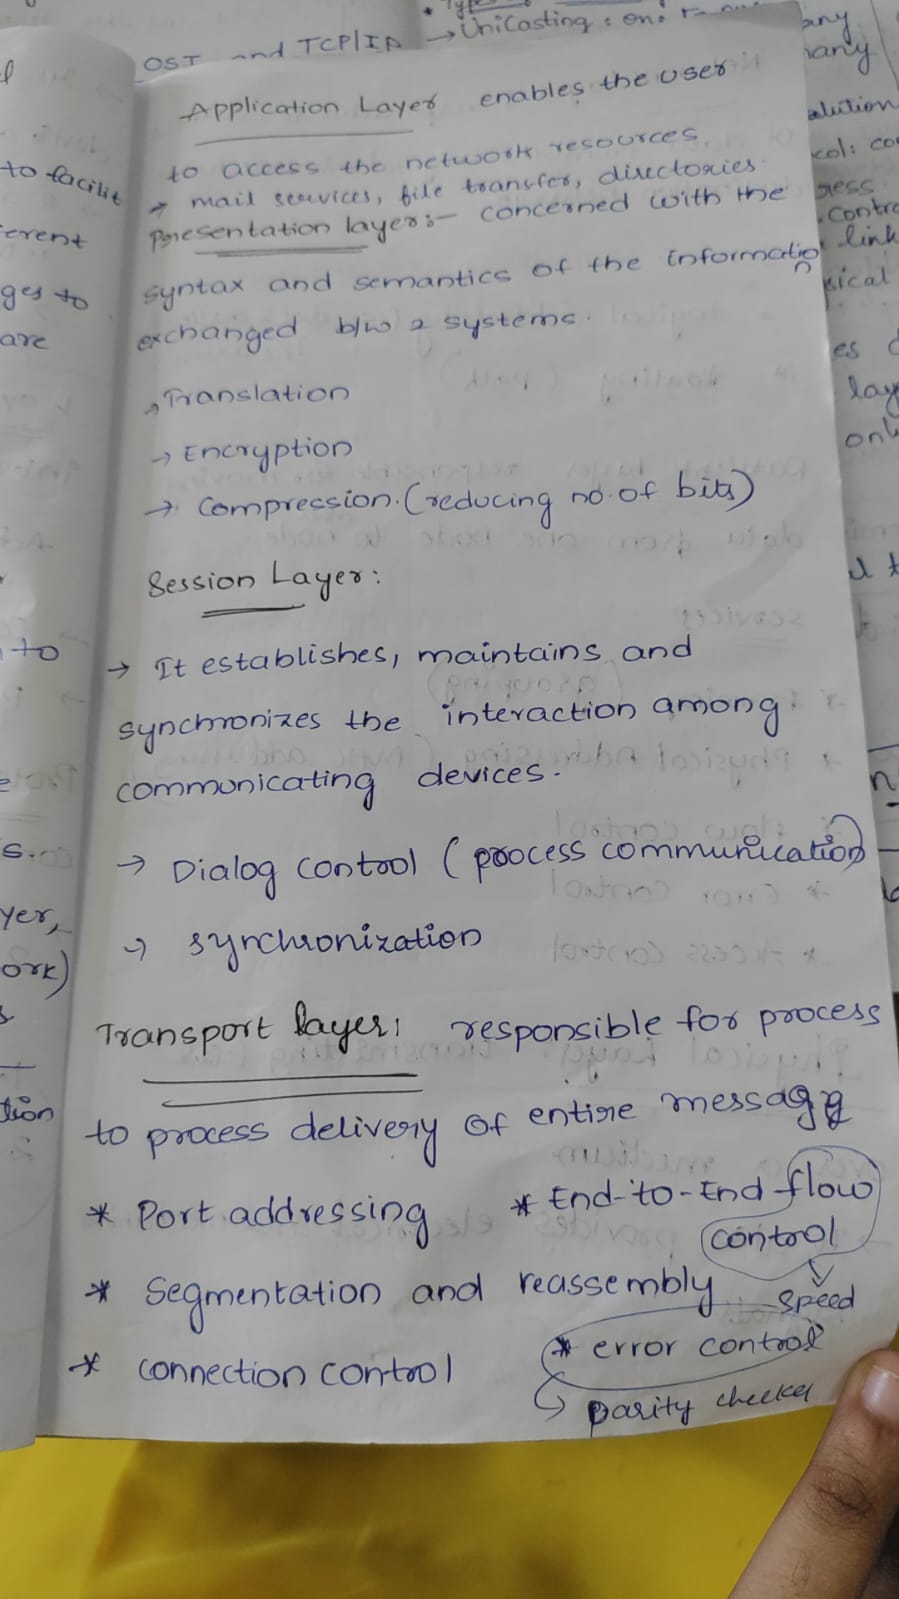 OSI and TCP/IP → Unicasting : one
Application Layer enables the user
to access the network resources
→ mail services, file transfer, directories.
Presentation layer:- concerned with the
syntax and semantics of the information
exchanged b/w 2 systems.
→ Translation
→ Encryption
→ Compression. (reducing no. of bits)
Session Layer:
→ It establishes, maintains and
synchronizes the interaction among
communicating devices.
→ Dialog control (process communication)
→ synchronization
Transport layer: responsible for process
to process delivery of entire message
* Port addressing * End-to-End flow
control
* Segmentation and reassembly → speed
* connection control * error control
↳ parity checker
to facilit
erent
ges to
are
to
s.
yer,
ork)
tion
any
many
olution
col: co
ess
contro
link
sical
es
lay
onl